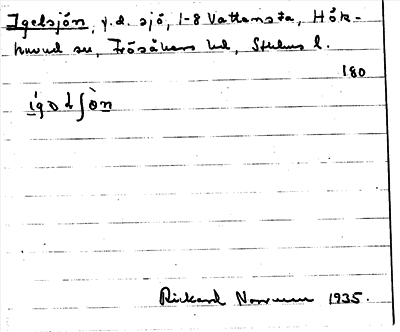 Igelsjön, y.d. sjö, 1-8 Vattensta, Hök-
huvud sn, Frösåkers hd, Sthlms l.
180
Rickard Norrman 1935.